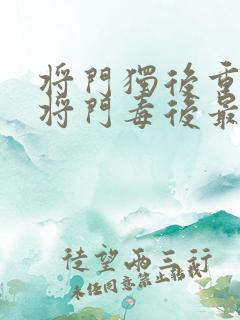 将門獨後重
将門毒後最
徒望兩三行
未经同意禁止转载